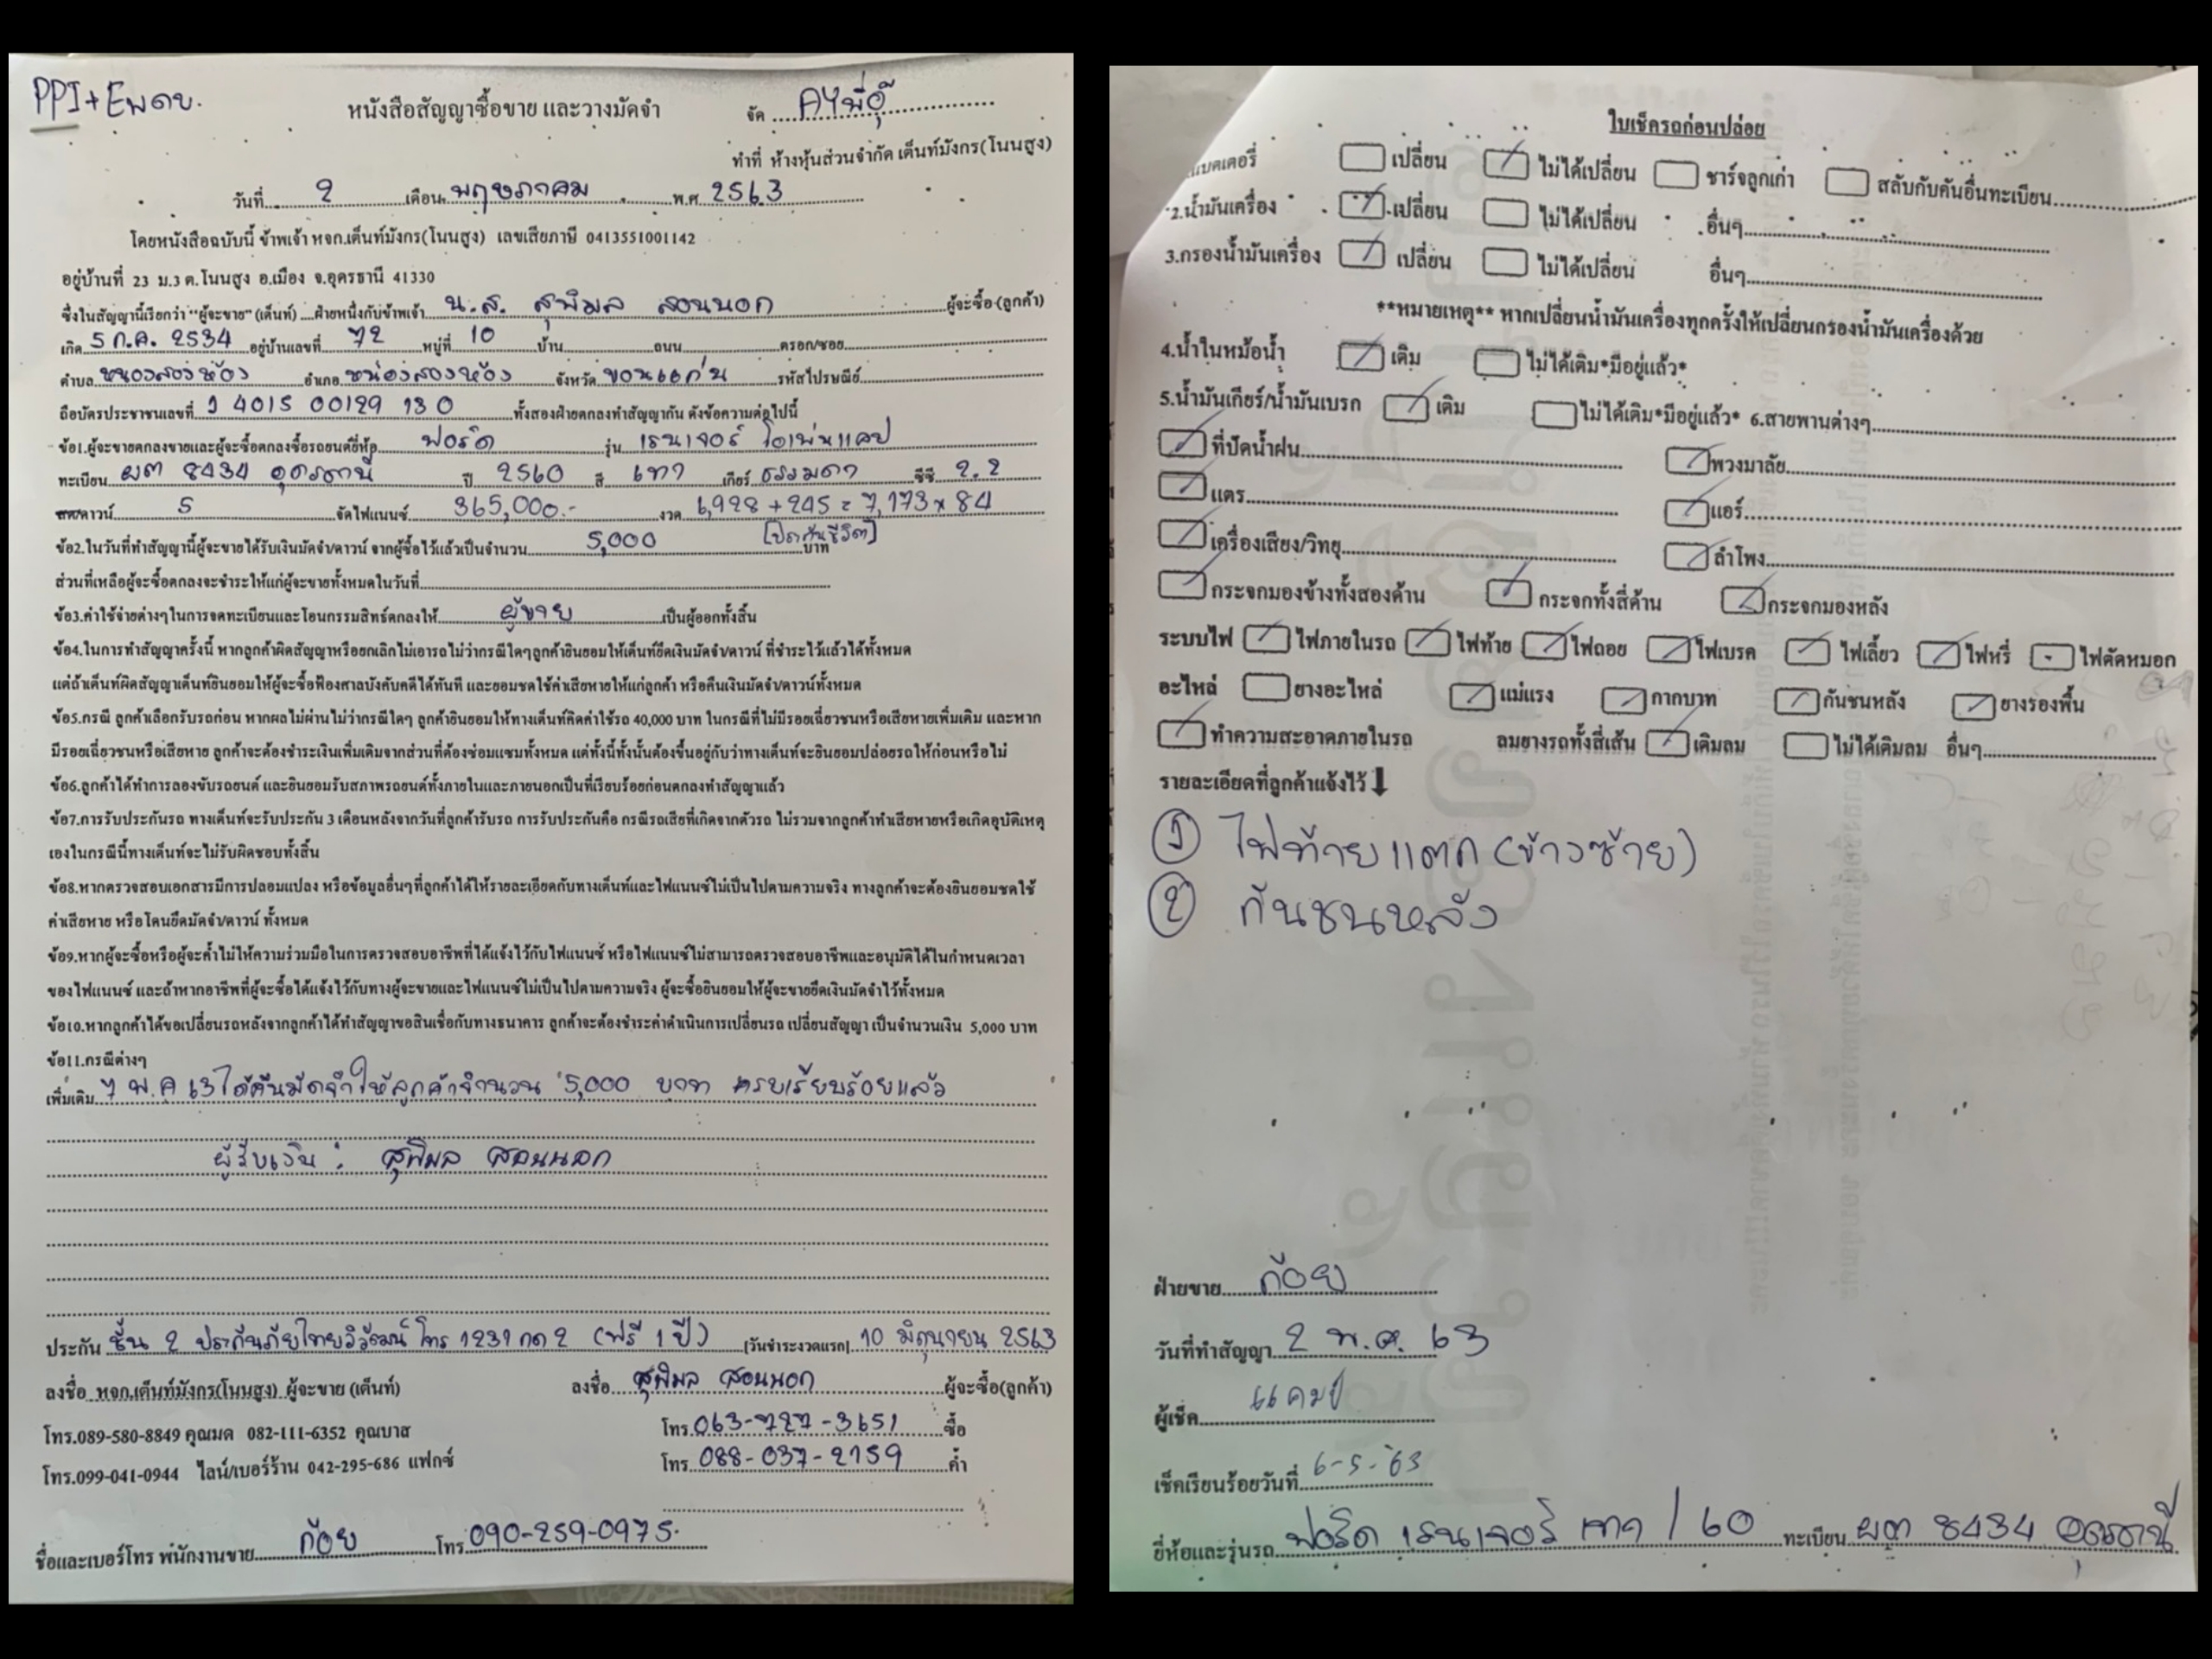 PPI+Eพดข.
หนังสือสัญญาซื้อขาย และวางมัดจำ
จัด AYพี่อุ๊
ทำที่ ห้างหุ้นส่วนจำกัด เต็นท์มังกร(โนนสูง)
วันที่ 2 เดือน พฤษภาคม พ.ศ 2563
โดยหนังสือฉบับนี้ ข้าพเจ้า หจก.เต็นท์มังกร(โนนสูง) เลขเสียภาษี 0413551001142
อยู่บ้านที่ 23 ม.3 ต.โนนสูง อ.เมือง จ.อุดรธานี 41330
ซึ่งในสัญญานี้เรียกว่า "ผู้จะขาย" (เต็นท์) ...ฝ่ายหนึ่งกับข้าพเจ้า น.ส. สุพิมล สอนนอก ผู้จะซื้อ (ลูกค้า)
เกิด 5 ก.ค. 2534 อยู่บ้านเลขที่ 72 หมู่ที่ 10 บ้าน ถนน ตรอก/ซอย
ตำบล หนองสองห้อง อำเภอ หนองสองห้อง จังหวัด ขอนแก่น รหัสไปรษณีย์
ถือบัตรประชาชนเลขที่ 1 4015 00129 13 0 ทั้งสองฝ่ายตกลงทำสัญญากัน ดังข้อความต่อไปนี้
ข้อ1.ผู้จะขายตกลงขายและผู้จะซื้อตกลงซื้อรถยนต์ยี่ห้อ ฟอร์ด รุ่น เรนเจอร์ โอเพ่นแคป
ทะเบียน ผต 8434 อุดรธานี ปี 2560 สี เทา เกียร์ ธรรมดา ซีซี 2.2
สด/ดาวน์ 5 จัดไฟแนนซ์ 365,000.- งวด 6,928 + 245 = 7,173 x 84
[ประกันชีวิต]
ข้อ2.ในวันที่ทำสัญญานี้ผู้จะขายได้รับเงินมัดจำ/ดาวน์ จากผู้ซื้อไว้แล้วเป็นจำนวน 5,000 บาท
ส่วนที่เหลือผู้จะซื้อตกลงจะชำระให้แก่ผู้จะขายทั้งหมดในวันที่
ข้อ3.ค่าใช้จ่ายต่างๆในการจดทะเบียนและโอนกรรมสิทธ์ตกลงให้ ผู้ขาย เป็นผู้ออกทั้งสิ้น
ข้อ4.ในการทำสัญญาครั้งนี้ หากลูกค้าผิดสัญญาหรือยกเลิกไม่เอารถไม่ว่ากรณีใดๆลูกค้ายินยอมให้เต็นท์ยึดเงินมัดจำ/ดาวน์ ที่ชำระไว้แล้วได้ทั้งหมด
แต่ถ้าเต็นท์ผิดสัญญาเต็นท์ยินยอมให้ผู้จะซื้อฟ้องศาลบังคับคดีได้ทันที และยอมชดใช้ค่าเสียหายให้แก่ลูกค้า หรือคืนเงินมัดจำ/ดาวน์ทั้งหมด
ข้อ5.กรณี ลูกค้าเลือกรับรถก่อน หากผลไม่ผ่านไม่ว่ากรณีใดๆ ลูกค้ายินยอมให้ทางเต็นท์คิดค่าใช้รถ 40,000 บาท ในกรณีที่ไม่มีรอยเฉี่ยวชนหรือเสียหายเพิ่มเติม และหาก
มีรอยเฉี่ยวชนหรือเสียหาย ลูกค้าจะต้องชำระเงินเพิ่มเติมจากส่วนที่ต้องซ่อมแซมทั้งหมด แต่ทั้งนี้ทั้งนั้นต้องขึ้นอยู่กับว่าทางเต็นท์จะยินยอมปล่อยรถให้ก่อนหรือไม่
ข้อ6.ลูกค้าได้ทำการลองขับรถยนต์ และยินยอมรับสภาพรถยนต์ทั้งภายในและภายนอกเป็นที่เรียบร้อยก่อนตกลงทำสัญญาแล้ว
ข้อ7.การรับประกันรถ ทางเต็นท์จะรับประกัน 3 เดือนหลังจากวันที่ลูกค้ารับรถ การรับประกันคือ กรณีรถเสียที่เกิดจากตัวรถ ไม่รวมจากลูกค้าทำเสียหายหรือเกิดอุบัติเหตุ
เองในกรณีนี้ทางเต็นท์จะไม่รับผิดชอบทั้งสิ้น
ข้อ8.หากตรวจสอบเอกสารมีการปลอมแปลง หรือข้อมูลอื่นๆที่ลูกค้าได้ให้รายละเอียดกับทางเต็นท์และไฟแนนซ์ไม่เป็นไปตามความจริง ทางลูกค้าจะต้องยินยอมชดใช้
ค่าเสียหาย หรือโดนยึดมัดจำ/ดาวน์ ทั้งหมด
ข้อ9.หากผู้จะซื้อหรือผู้จะค้ำไม่ให้ความร่วมมือในการตรวจสอบอาชีพที่ได้แจ้งไว้กับไฟแนนซ์ หรือไฟแนนซ์ไม่สามารถตรวจสอบอาชีพและอนุมัติได้ในกำหนดเวลา
ของไฟแนนซ์ และถ้าหากอาชีพที่ผู้จะซื้อได้แจ้งไว้กับทางผู้จะขายและไฟแนนซ์ไม่เป็นไปตามความจริง ผู้จะซื้อยินยอมให้ผู้จะขายยึดเงินมัดจำไว้ทั้งหมด
ข้อ10.หากลูกค้าได้ขอเปลี่ยนรถหลังจากลูกค้าได้ทำสัญญาขอสินเชื่อกับทางธนาคาร ลูกค้าจะต้องชำระค่าดำเนินการเปลี่ยนรถ เปลี่ยนสัญญา เป็นจำนวนเงิน 5,000 บาท
ข้อ11.กรณีต่างๆ
เพิ่มเติม 7 พ.ค 63 ได้คืนมัดจำให้ลูกค้าจำนวน 5,000 บาท ครบเรียบร้อยแล้ว
ผู้รับเงิน : สุพิมล สอนนอก
ประกัน ชั้น 2 ประกันภัยไทยวิวัฒน์ โทร 1231 กด 2 (ฟรี 1 ปี) [วันชำระงวดแรก] 10 มิถุนายน 2563
ลงชื่อ หจก.เต็นท์มังกร(โนนสูง) ผู้จะขาย (เต็นท์) ลงชื่อ สุพิมล สอนนอก ผู้จะซื้อ(ลูกค้า)
โทร.089-580-8849 คุณมด 082-111-6352 คุณบาส โทร. 063-727-3651 ซื้อ
โทร.099-041-0944 ไลน์/เบอร์ร้าน 042-295-686 แฟกซ์ โทร 088-037-2159 ค้ำ
ชื่อและเบอร์โทร พนักงานขาย ก้อย โทร 090-259-0975
ใบเช็ครถก่อนปล่อย
แบตเตอรี่ เปลี่ยน ไม่ได้เปลี่ยน ชาร์จลูกเก่า สลับกับคันอื่นทะเบียน
2.น้ำมันเครื่อง เปลี่ยน ไม่ได้เปลี่ยน อื่นๆ
3.กรองน้ำมันเครื่อง เปลี่ยน ไม่ได้เปลี่ยน อื่นๆ
**หมายเหตุ** หากเปลี่ยนน้ำมันเครื่องทุกครั้งให้เปลี่ยนกรองน้ำมันเครื่องด้วย
4.น้ำในหม้อน้ำ เติม ไม่ได้เติม*มีอยู่แล้ว*
5.น้ำมันเกียร์/น้ำมันเบรก เติม ไม่ได้เติม*มีอยู่แล้ว* 6.สายพานต่างๆ
ที่ปัดน้ำฝน พวงมาลัย
แตร แอร์
เครื่องเสียง/วิทยุ ลำโพง
กระจกมองข้างทั้งสองด้าน กระจกทั้งสี่ด้าน กระจกมองหลัง
ระบบไฟ ไฟภายในรถ ไฟท้าย ไฟถอย ไฟเบรค ไฟเลี้ยว ไฟหรี่ ไฟตัดหมอก
อะไหล่ ยางอะไหล่ แม่แรง กากบาท กันชนหลัง ยางรองพื้น
ทำความสะอาดภายในรถ ลมยางรถทั้งสี่เส้น เติมลม ไม่ได้เติมลม อื่นๆ
รายละเอียดที่ลูกค้าแจ้งไว้
① ไฟท้ายแตก (ข้างซ้าย)
② กันชนหลัง
ฝ่ายขาย ก้อย
วันที่ทำสัญญา 2 พ.ค. 63
ผู้เช็ค แคมป์
เช็คเรียบร้อยวันที่ 6-5-63
ยี่ห้อและรุ่นรถ ฟอร์ด เรนเจอร์ เทา / 60 ทะเบียน ผต 8434 อุดรธานี